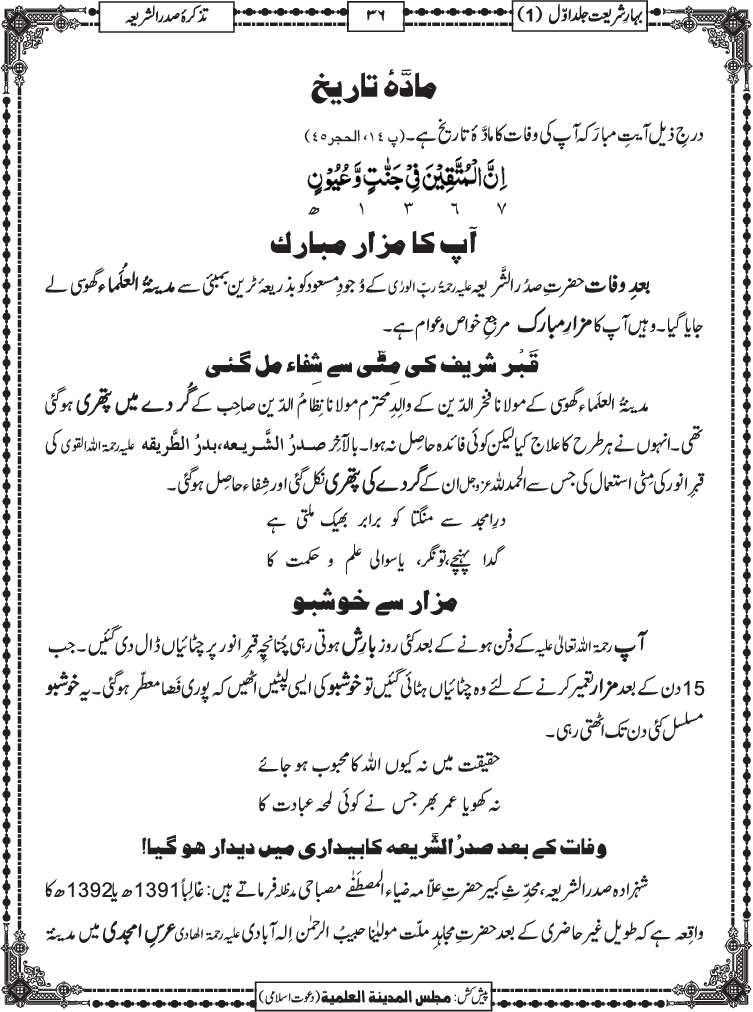 بہارِ شریعت جلد اوّل (1)
۳۶
تذکرۂ صدر الشریعہ
مادَّۂ تاریخ
درجِ ذیل آیتِ مبارَکہ آپ کی وفات کا مادَّۂ تاریخ ہے۔ (پ ۱۴، الحجر ۴۵)
اِنَّ الْمُتَّقِیْنَ فِیْ جَنّٰتٍ وَّعُیُوْنٍ
۷ ۶ ۳ ۱ ھ
آپ کا مزار مبارک
بعدِ وفات حضرتِ صدرُ الشَّریعہ علیہ رحمۃُ ربِّ الورٰی کے وُجودِ مسعود کو بذریعۂ ٹرین بمبئی سے مدینۃُ العُلَماء گھوسی لے
جایا گیا۔ وہیں آپ کا مزارِ مبارک مرجعِ خواص و عوام ہے۔
قَبْر شریف کی مِٹّی سے شِفاء مل گئی
مدینۃُ العلَماء گھوسی کے مولانا فخر الدّین کے والدِ محترم مولانا نِظامُ الدّین صاحِب کے گُردے میں پتھری ہوگئی
تھی۔ انہوں نے ہر طرح کا علاج کیا لیکن کوئی فائدہ حاصِل نہ ہوا۔ بالآخِر صدرُ الشَّریعہ، بدرُ الطَّریقہ علیہ رحمۃ اللہ القوی کی
قبرِ انور کی مِٹی استعمال کی جس سے الحمدللہ عزوجل ان کے گردے کی پتھری نکل گئی اور شِفاء حاصِل ہوگئی۔
درِ امجد سے منگتا کو برابر بھیک ملتی ہے
گدا پہنچے، تونگر، یا سوالی علم و حکمت کا
مزار سے خوشبو
آپ رحمۃ اللہ تعالیٰ علیہ کے دَفن ہونے کے بعد کئی روز بارِش ہوتی رہی چُنانچِہ قبرِ انور پر چٹائیاں ڈال دی گئیں۔ جب
15 دن کے بعد مزار تعمیر کرنے کے لئے وہ چٹائیاں ہٹائی گئیں تو خوشبو کی ایسی لپٹیں اٹھیں کہ پوری فَضا معطّر ہوگئی۔ یہ خوشبو
مسلسل کئی دن تک اٹھتی رہی۔
حقیقت میں نہ کیوں اللہ کا محبوب ہو جائے
نہ کھویا عمر بھر جس نے کوئی لمحہ عبادت کا
وفات کے بعد صدرُ الشَّریعہ کا بیداری میں دیدار ہو گیا!
شہزادہ صدر الشریعہ، محدِّثِ کبیر حضرتِ علّامہ ضیاءُ المصطَفٰے مصباحی مدظلہ فرماتے ہیں: غالِباً 1391ھ یا 1392ھ کا
واقِعہ ہے کہ طویل غیر حاضری کے بعد حضرتِ مجاہدِ ملّت مولیٰنا حبیبُ الرحمٰن اِلٰہ آبادی علیہ رحمۃ الھادی عرسِ امجدی میں مدینۃ
پیش کش: مجلس المدینة العلمیة (دعوت اسلامی)